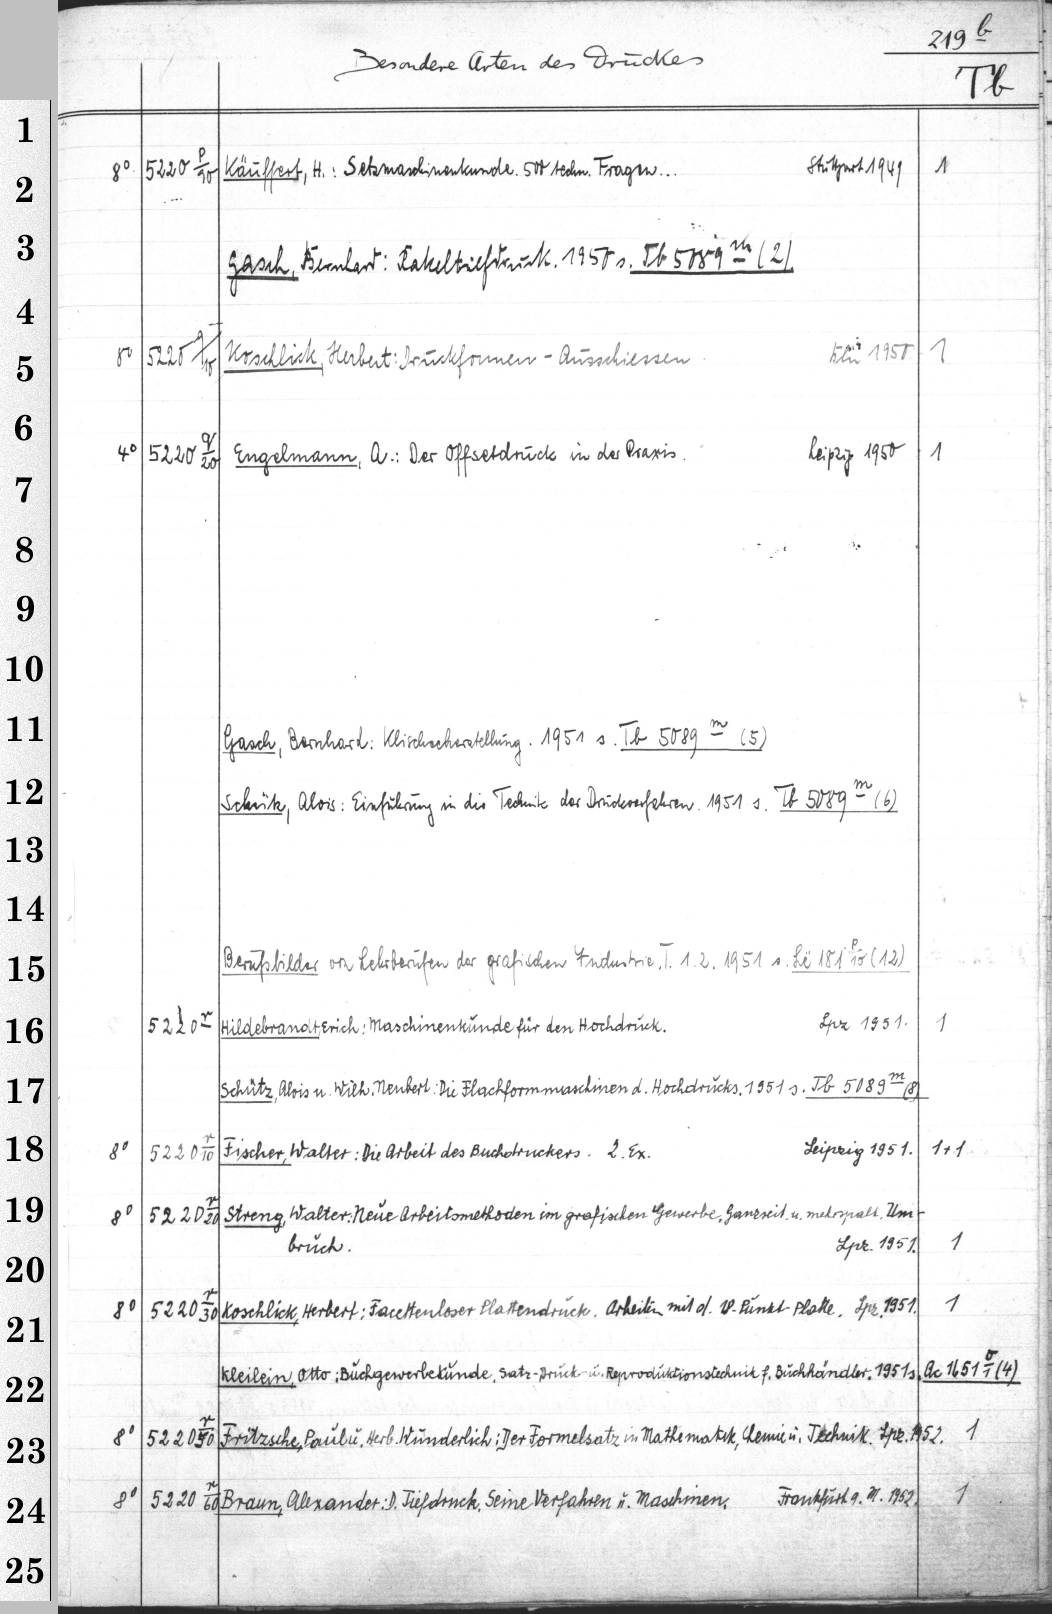 219 b
Besondere Arten des Druckes
Tb
1
2
8° 5220 p/90 Käuffert, H.: Setzmaschinenkunde. 500 techn. Fragen... Stuttgart 1949 1
3
Gasch, Bernhard: Rakeltiefdruck. 1950 s. Tb 5089 m (2)
4
5
8° 5220 Koschlick, Herbert: Druckformen - Ausschiessen 1950 1
6
4° 5220 q/20 Engelmann, A.: Der Offsetdruck in der Praxis. Leipzig 1950 1
7
8
9
10
11
Gasch, Bernhard: Klischeeherstellung. 1951 s. Tb 5089 m (5)
12
Schütz, Alois: Einführung in die Technik der Druckverfahren. 1951 s. Tb 5089 m (6)
13
14
15
Berufsbilder von Lehrberufen der grafischen Industrie. T. 1.2. 1951 s. Lö 181 p/10 (12)
16
5220 r Hildebrandt, Erich: Maschinenkunde für den Hochdruck. Lpz 1951. 1
17
Schütz, Alois u. Wilh. Neubert: Die Flachformmaschinen d. Hochdrucks. 1951 s. Tb 5089 m (8)
18
8° 5220 r/10 Fischer, Walter: Die Arbeit des Buchdruckers. 2. Ex. Leipzig 1951. 1+1
19
8° 5220 r/20 Streng, Walter: Neue Arbeitsmethoden im grafischen Gewerbe. Ganzseit. u. mehrspalt. Um-
bruch. Lpz. 1951. 1
20
8° 5220 r/30 Koschlick, Herbert: Facettenloser Plattendruck. Arbeiten mit d. V-Punkt-Platte. Lpz. 1951. 1
21
22
Kleilein, Otto: Buchgewerbekunde. Satz-Druck- u. Reproduktionstechnik f. Buchhändler. 1951 s. Ac 1651 σ/1 (4)
23
8° 5220 r/50 Fritzsche, Paul u. Herb. Wunderlich: Der Formelsatz in Mathematik, Chemie u. Technik. Lpz. 1952. 1
24
8° 5220 r/60 Braun, Alexander: D. Tiefdruck. Seine Verfahren u. Maschinen. Frankfurt a. M. 1952. 1
25